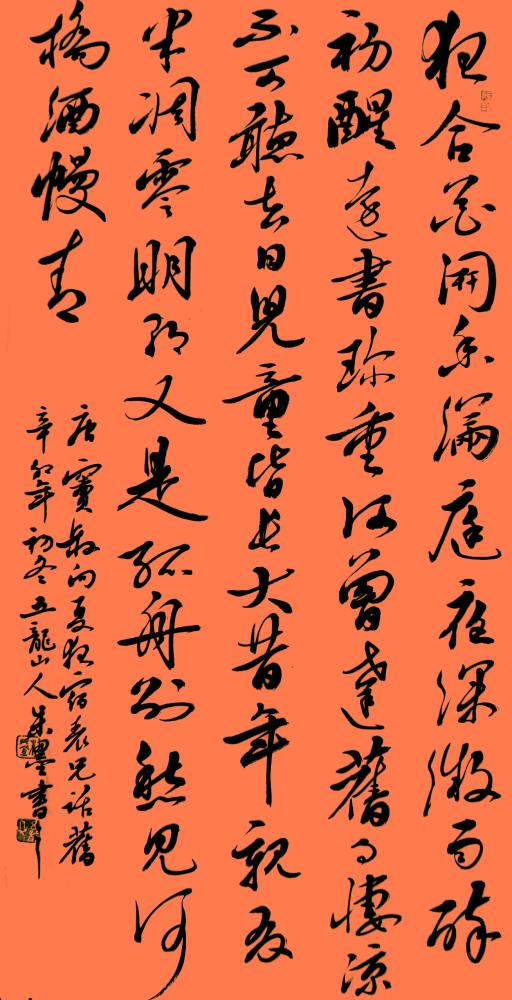 夜合花開香滿庭夜深微雨醉
初醒遠書珍重何曾達舊事悽涼
不可聽去日兒童皆長大昔年親友
半凋零明朝又是孤舟別愁見河
橋酒幔青
唐竇叔向夏夜宿表兄話舊
辛卯年初冬五龍山人朱墨書